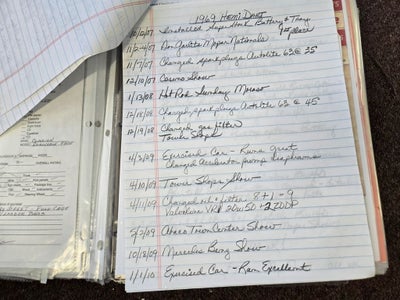 1969 Hemi Dart
10/10/07 Installed Super Stock Battery & Tray
1st Place
11/2-4/07 Don Garlits Mopar Nationals
11/7/07 Changed spark plugs Autolite 63 @ 35
12/10/07 Casino Show
1/13/08 Hot Rod Sunday Moroso
Changed spark plugs Autolite 63 @ 45
10/19/08 Changed gas filter
Tower Shops
4/3/09 Exercised Car - Runs great
Changed accelerator pump diaphragms
4/10/09 Tower Shops Show
4/11/09 Changed oil & filter 8 + 1 = 9
Valvoline VR1 20W50 + ZDDP
5/2/09 Show
10/8/09 Mercedes Benz Show
1/1/10 Exercised Car - Ran Excellent